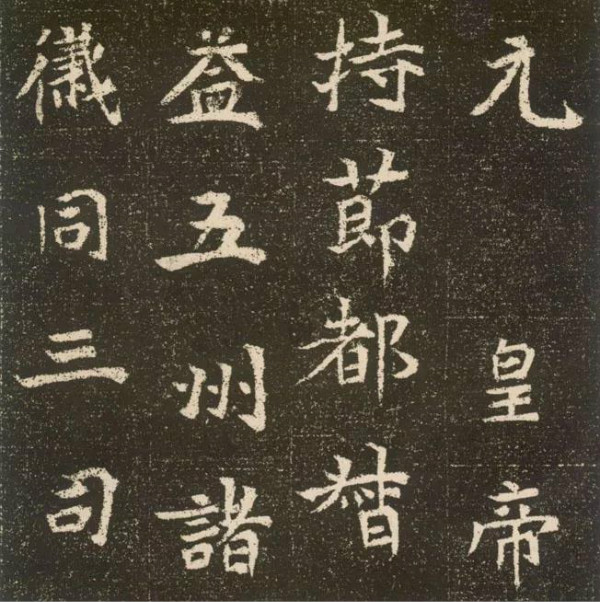 元皇帝
持節都督
益五州諸
儀同三司